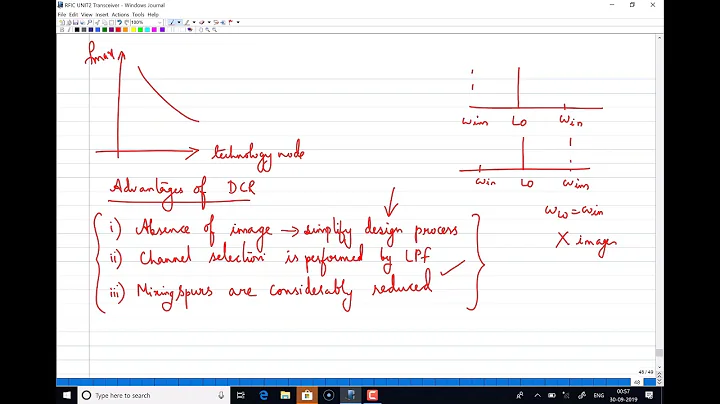 RFIC UNIT2 Transceiver - Windows Journal
File Edit View Insert Actions Tools Help
100%
fmax
technology node
ωim LO ωin
ωin LO ωim
ωLO = ωin
X images
Advantages of DCR
i) Absence of image → simplify design process
ii) Channel selection is performed by LPF
iii) Mixing spurs are considerably reduced ✓
48 / 48
48
Type here to search
ENG
00:57
30-09-2019